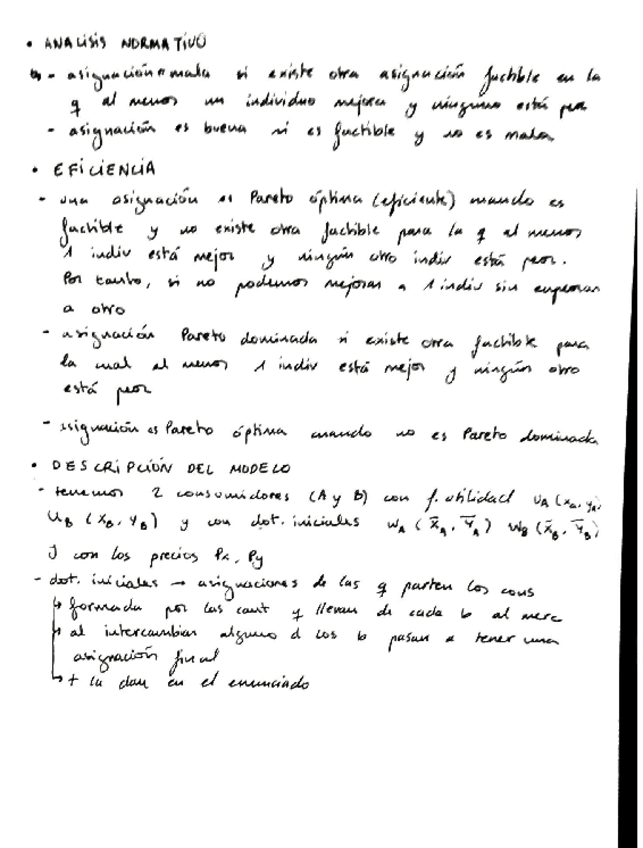 • ANALISIS NORMATIVO
- asignación mala si existe otra asignación factible en la
q al menos un individuo mejora y ninguno está peor
- asignación es buena si es factible y no es mala
• EFICIENCIA
- una asignación es Pareto óptima (eficiente) cuando es
factible y no existe otra factible para la q al menos
1 indiv está mejor y ningún otro indiv está peor.
Por tanto, si no podemos mejorar a 1 indiv sin empeorar
a otro
- asignación Pareto dominada si existe otra factible para
la cual al menos 1 indiv está mejor y ningún otro
está peor
- asignación es Pareto óptima cuando no es Pareto dominada
• DESCRIPCIÓN DEL MODELO
- tenemos 2 consumidores (A y B) con f. utilidad UA (xA, yA)
UB (XB, YB) y con dot. iniciales WA (X̄A, ȲA) WB (X̄B, ȲB)
y con los precios Px, Py
- dot. iniciales → asignaciones de las q parten los cons
↳ formada por las cant q llevan de cada b al merc
↳ al intercambiar alguno d los b pasan a tener una
asignación final
↳ + la dan en el enunciado